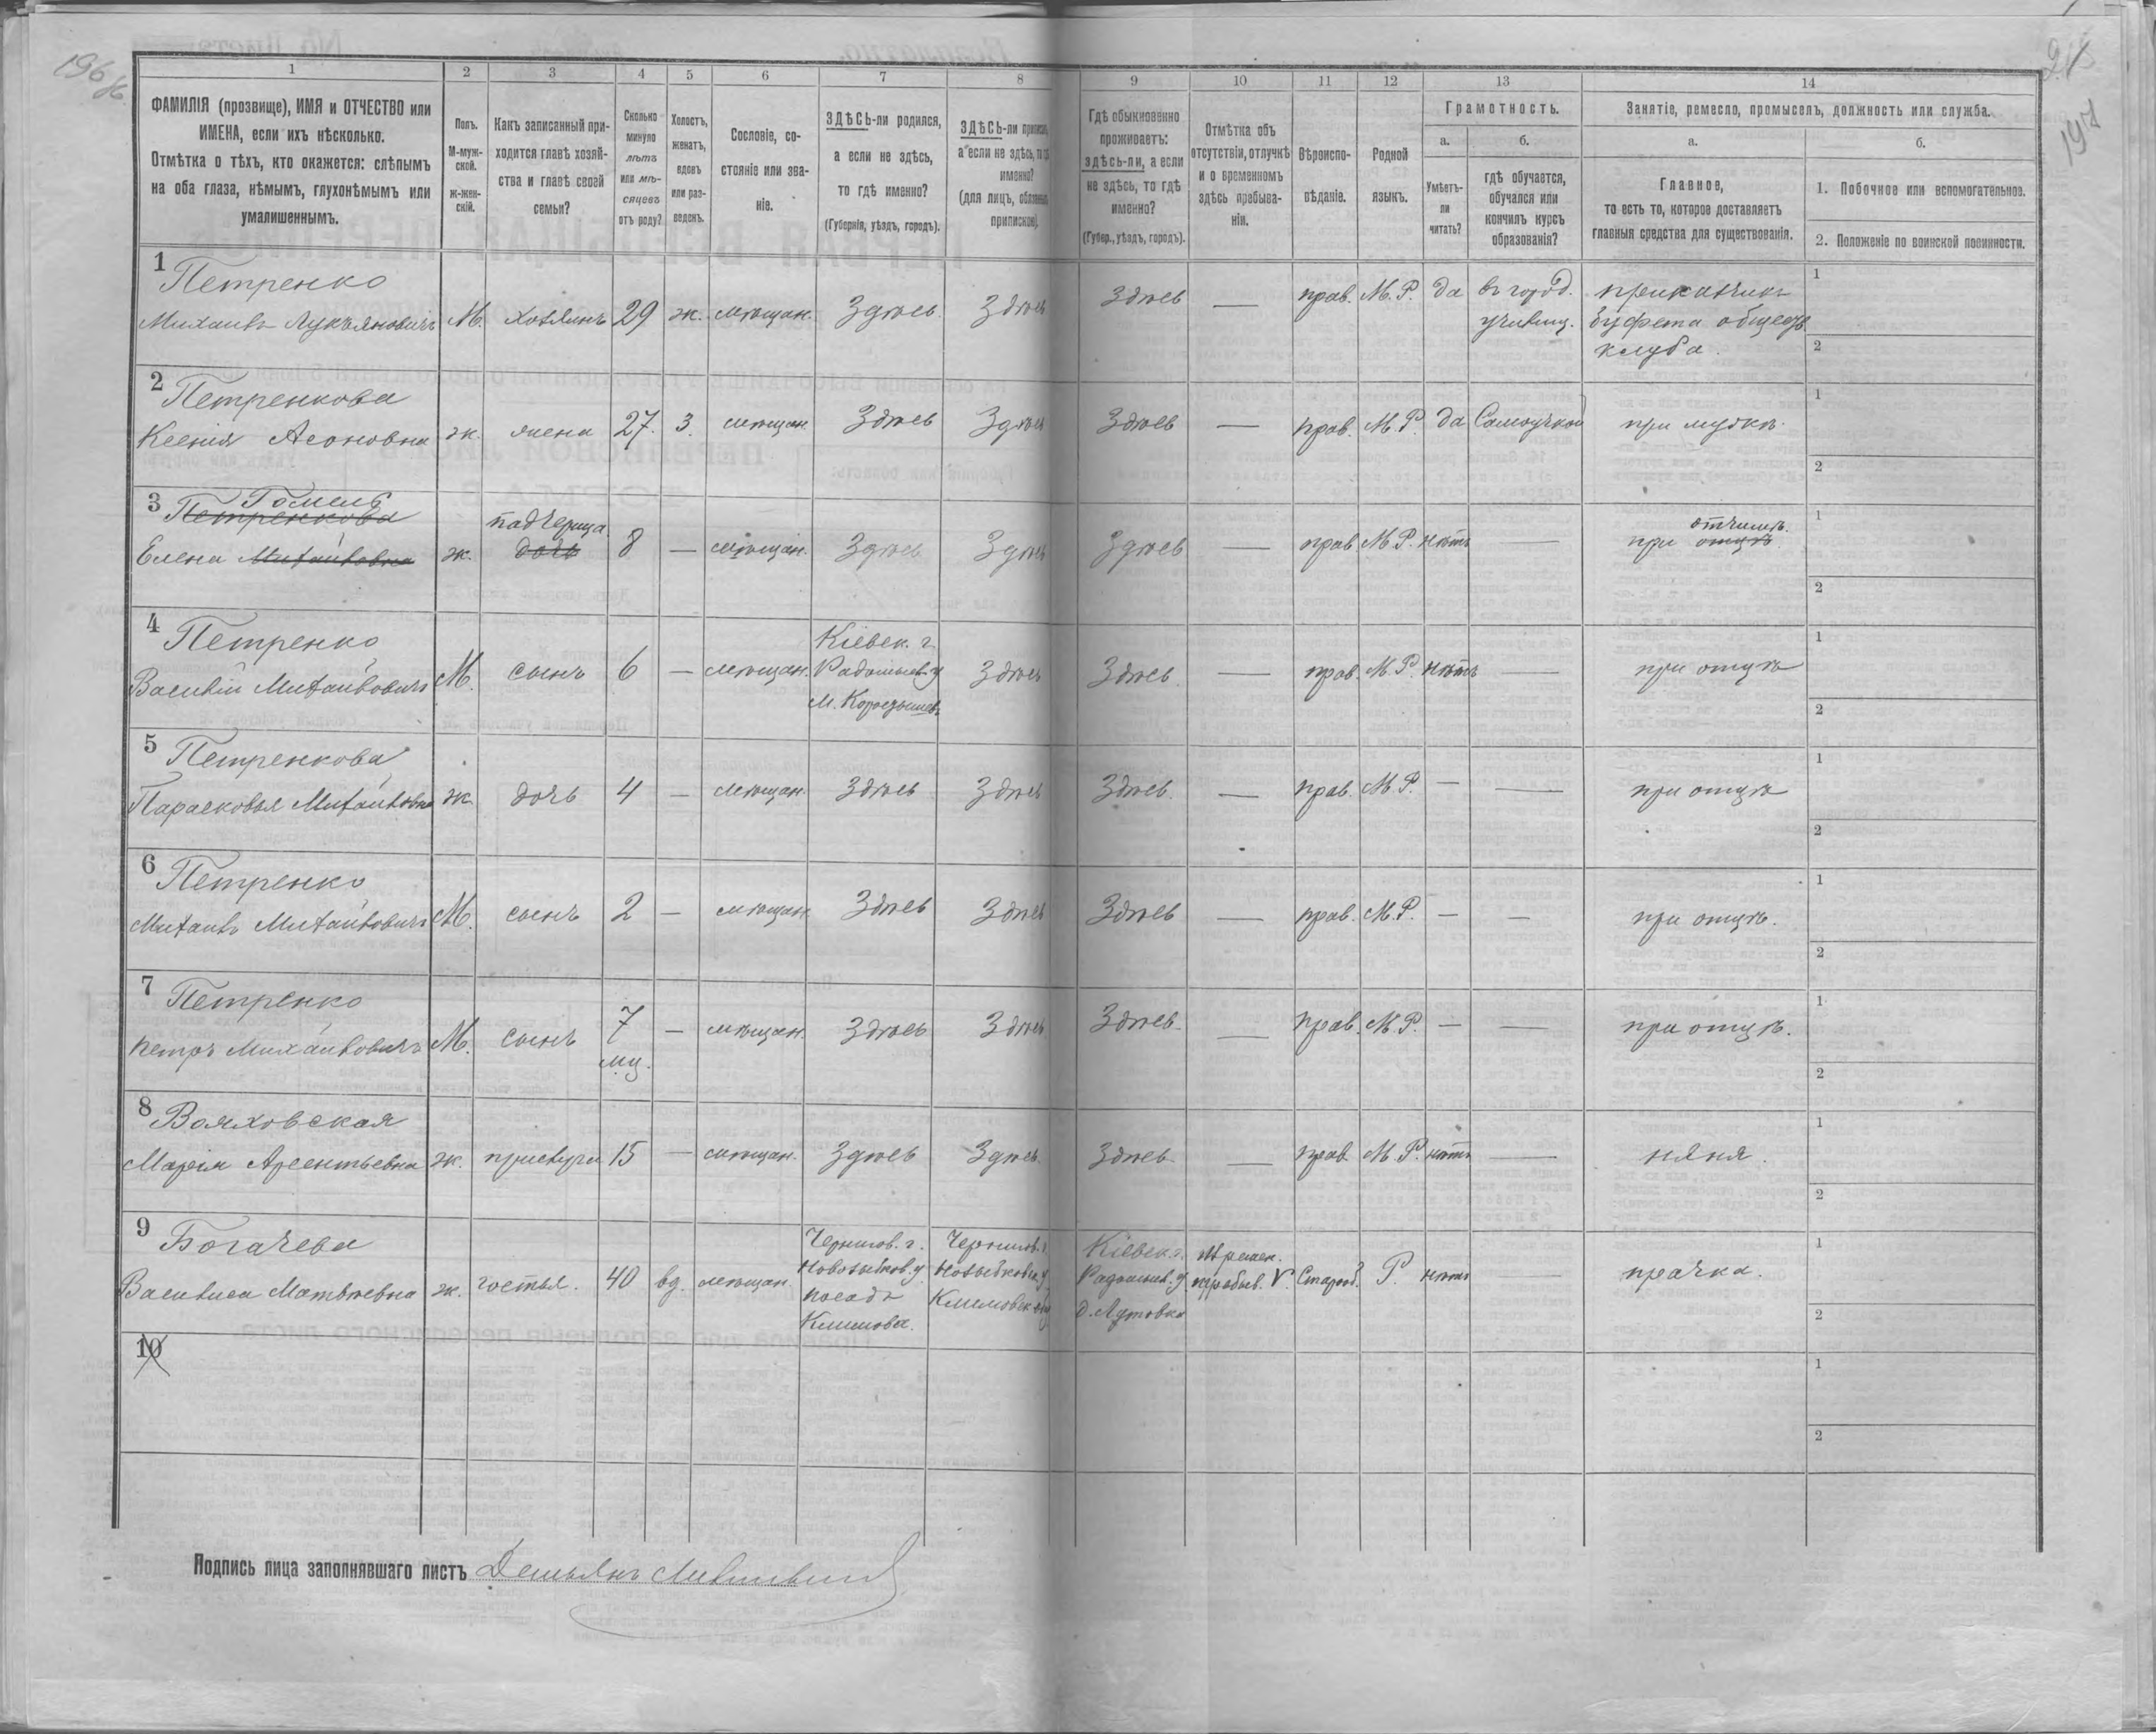 196
197
1 2 3 4 5 6 7 8 9 10 11 12 13 14
ФАМИЛІЯ (прозвище), ИМЯ и ОТЧЕСТВО или
ИМЕНА, если ихъ нѣсколько.
Отмѣтка о тѣхъ, кто окажется: слѣпымъ
на оба глаза, нѣмымъ, глухонѣмымъ или
умалишеннымъ.
Полъ.
М-муж-
ской.
ж-жен-
скій.
Какъ записанный при-
ходится главѣ хозяй-
ства и главѣ своей
семьи?
Сколько
минуло
лѣтъ
или мѣ-
сяцевъ
отъ роду?
Холостъ,
женатъ,
вдовъ
или раз-
веденъ.
Сословіе, со-
стояніе или зва-
ніе.
ЗДѢСЬ-ли родился,
а если не здѣсь,
то гдѣ именно?
(Губернія, уѣздъ, городъ).
ЗДѢСЬ-ли приписанъ,
а если не здѣсь, то гдѣ
именно?
(для лицъ, обязанныхъ
припискою)
Гдѣ обыкновенно
проживаетъ:
здѣсь-ли, а если
не здѣсь, то гдѣ
именно?
(Губер., уѣздъ, городъ).
Отмѣтка объ
отсутствіи, отлучкѣ
и о временномъ
здѣсь пребыва-
ніи.
Вѣроиспо-
вѣданіе.
Родной
языкъ.
Грамотность.
а.
Умѣетъ-
ли
читать?
б.
гдѣ обучается,
обучался или
кончилъ курсъ
образованія?
Занятіе, ремесло, промыселъ, должность или служба.
а.
Главное,
то есть то, которое доставляетъ
главныя средства для существованія.
б.
1. Побочное или вспомогательное.
2. Положеніе по воинской повинности.
1 Петренко
Михаилъ Лукьяновичъ М. хозяинъ 29 ж. мѣщан. Здѣсь Здѣсь Здѣсь — прав. М.Р. да въ город.
училищ.
прикащикъ
буфета обществ
клуба.
1
2
2 Петренкова
Ксенія Асоновна ж. жена 27. З. мѣщан. Здѣсь Здѣсь Здѣсь — прав. М.Р. да Самоучкой при мужѣ.
1
2
3 Гомель
Петренкова
Елена Михайловна ж. падчерица
дочь 8 — мѣщан. Здѣсь Здѣсь Здѣсь — прав М.Р. нѣтъ — отчимѣ.
при отцѣ
1
2
4 Петренко
Василій Михайловичъ М. сынъ 6 — мѣщан. Кіевск. г.
Радомысл. у
м. Коростышев
Здѣсь Здѣсь. — прав. М.Р. нѣтъ — при отцѣ
1
2
5 Петренкова
Парасковья Михайловна ж. дочь 4 — мѣщан. Здѣсь Здѣсь Здѣсь. — прав. М.Р. — — при отцѣ
1
2
6 Петренко
Михаилъ Михайловичъ М. сынъ 2 — мѣщан. Здѣсь Здѣсь Здѣсь — прав. М.Р. — — при отцѣ.
1
2
7 Петренко
Петръ Михайловичъ М. сынъ 7
мц. — мѣщан. Здѣсь Здѣсь Здѣсь. — прав. М.Р. — — при отцѣ.
1
2
8 Воляховская
Марія Арсентьевна ж. прислуга 15 — мѣщан. Здѣсь Здѣсь. Здѣсь. — прав. М.Р. нѣтъ — няня.
1
2
9 Богачева
Василиса Матвѣевна ж. гостья. 40 вд. мѣщан. Чернигов. г.
Новозыбков. у
посадъ
Климова.
Чернигов. г.
Новзыбковск. у
Климовск
Кіевск. г.
Радомысл. у.
д. Лутовка
времен.
пребыв. V. Староо. Р. нѣтъ — прачка.
1
2
10
1
2
Подпись лица заполнявшаго листъ Демьянъ